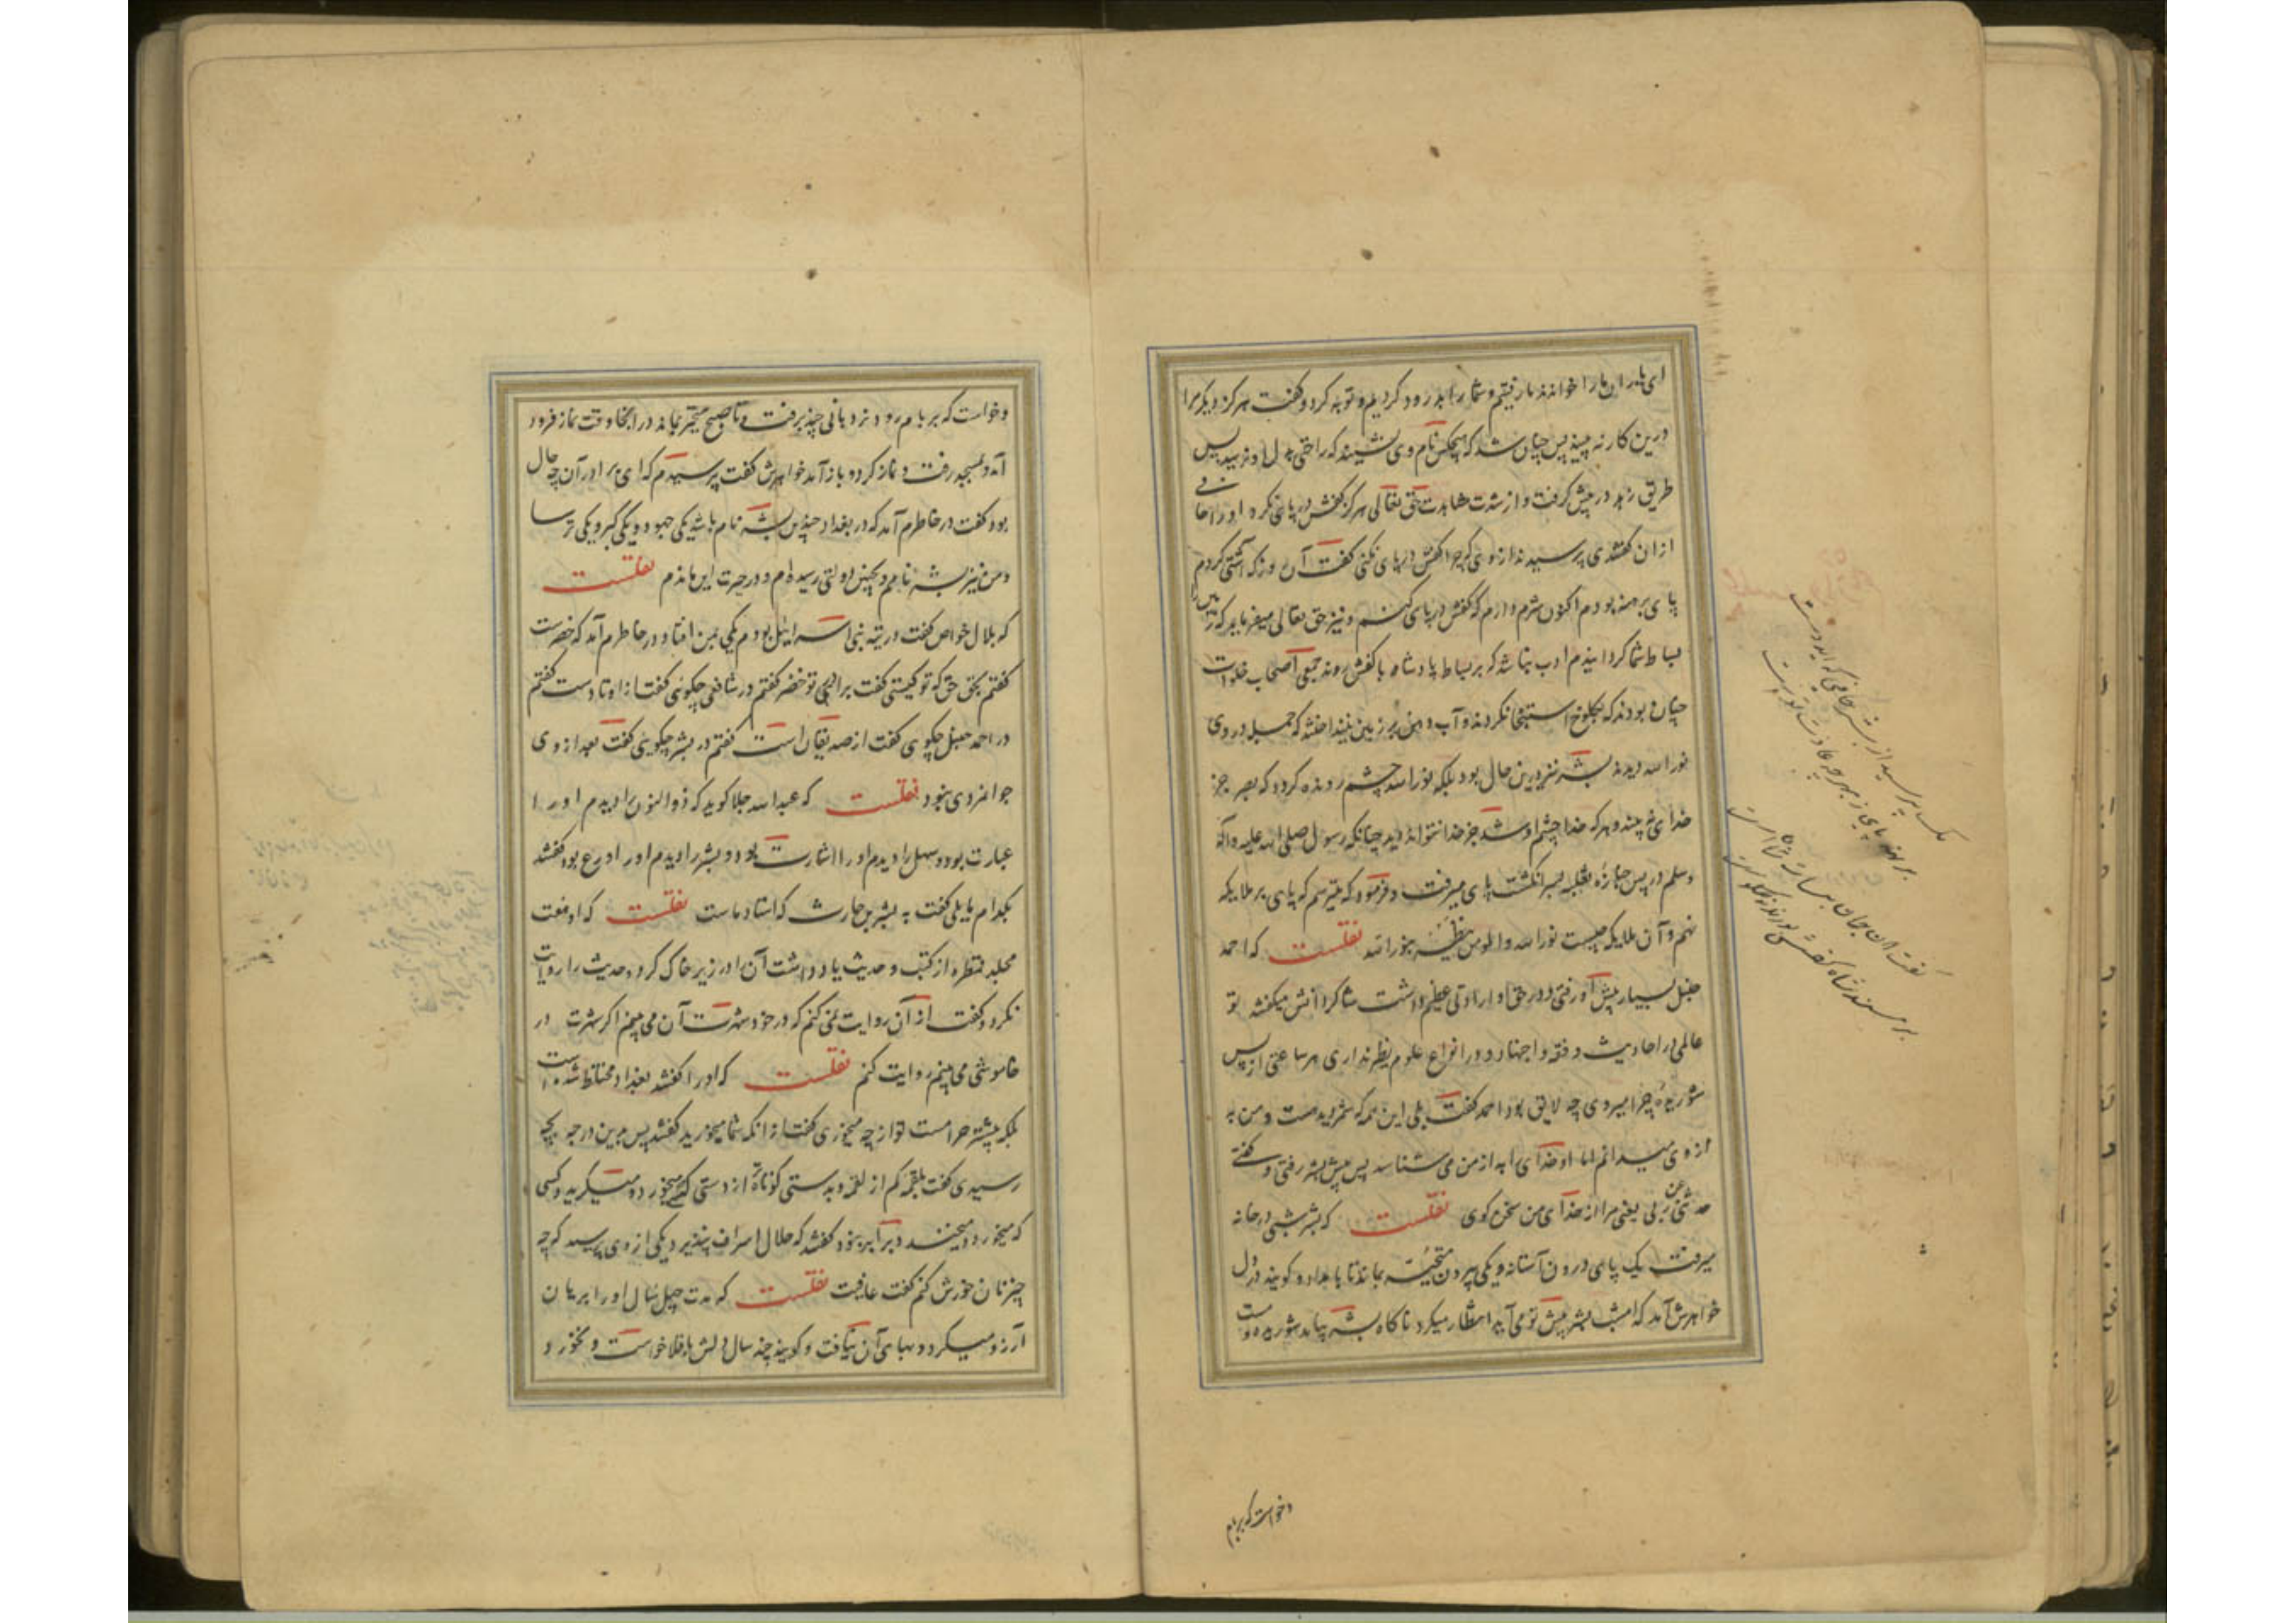 ای یاران ما را خواندند ما رفتیم و شما را بدرود کردیم و توبه کرد و گفت هرگز دیگر مرا
درین کار نه بینید پس چنان شد که هیچکس نام وی نشنیند که راحتی بدل او نرسید پس
طریق زهد در پیش گرفت و از شدت مشاهدت حق تعالی هرگز کفش در پای نکرد او را حافی
ازان گفتندی پرسیدند از وی که چرا کفش در پای نکنی گفت آن روز که آشتی کردم
پای برهنه بودم اکنون شرم دارم که کفش در پای کنم و نیز حق تعالی میفرماید که زمین را
بساط شما گردانیدم ادب نباشد که بر بساط پادشاه با کفش روند جمعی اصحاب خلوات
چنان بودند که بکلوخ استنجا نکردند و آب دهن بر زمین نینداختند که جمله در وی
نور الله دیدند بشر نیز درین حال بود بلکه نور الله چشم رونده گردد که بصر جز
خدای نه بیند و هر که خدا چشم او شد جز خدا نتواند دید چنانکه رسول صلی الله علیه وآله
وسلم در پس جنازه ثعلبه بسر انگشت پای میرفت و فرمود که میترسم که پای بر ملایکه
نهم و آن ملایکه چیست نور الله والمومن ینظر بنور الله نقلست که احمد
حنبل بسیار پیش او رفتی و در حق او ارادتی عظیم داشت شاگردانش میگفتند تو
عالمی در احادیث و فقه و اجتهاد و در انواع علوم نظیر نداری هر ساعتی از پس
شوریدهٔ چرا میروی چه لایق بود احمد گفت بلی این همه که شمردید هست و من به
از وی میدانم اما او خدای را به از من می شناسد پس پیش بشر رفتی و گفتی
حدثنی عن ربی یعنی مرا از خدای من سخن گوی نقلست که بشر شبی در خانه
میرفت یک پای درون آستانه و یکی بیرون متحیر بماند تا بامداد و گویند در دل
خواهرش آمد که امشب بشر پیش تو می آید انتظار میکرد ناگاه بشر بیامد شوریده و
وخواست که بر بام
یکی پرسید از بشر حافی که ای دوست
برهنه پای ز بهر چه عادت تو
وخواست که بر بام رود نردبانی چند برفت و تا صبح متحیر بماند در آنجا وقت نماز فرود
آمد و بمسجد رفت و نماز کرد و باز آمد خواهرش گفت پرسیدم که ای برادر آن چه حال
بود گفت در خاطرم آمد که در بغداد چندین بشر نام باشد یکی جهود و یکی گبر و یکی ترسا
ومن نیز بشر نامم و بچنین دولتی رسیده ام و در حیرت این ماندم نقلست
که بلال خواص گفت در تیه بنی اسرائیل بودم یکی بمن افتاد و در خاطرم آمد که خضرست
گفتم بحق حق که تو کیستی گفت برادر تو خضر گفتم در شافعی چگوئی گفت از اوتادست گفتم
در احمد حنبل چگوئی گفت از صدیقان است گفتم در بشر چگوئی گفت بعد از وی
جوانمردی نبود نقلست که عبدالله جلا گوید که ذوالنون را دیدم او را
عبارت بود و سهل را دیدم او را اشارت بود و بشر را دیدم او را ورع بود گفتند
بکدام مایلی گفت به بشر بن حارث که استاد ماست نقلست که او هفت
مجلد قمطره از کتب و حدیث یاد داشت آن را در زیر خاک کرد و حدیث را روایت
نکرد و گفت از آن روایت نمی کنم که در خود شهوت آن می بینم اگر شهوت در
خاموشی می بینم روایت کنم نقلست که او را گفتند بغداد مختلط شده است
بلکه بیشتر حرامست تو از چه میخوری گفت از انکه شما میخورید گفتند پس بدین درجه بچه
رسیدی گفت بلقمه کم از لقمه و بدستی کوتاه از دستی کسی که میخورد و میگرید و کسی
که میخورد و میخندد برابر نبود گفتند که حلال اسراف نپذیرد یکی از وی پرسید که چه
چیز نان خورش کنم گفت عافیت نقلست که مدت چهل سال او را بریان
آرزو میکرد و بهای آن نیافت و گویند چند سال دلش باقلا خواست و نخورد و